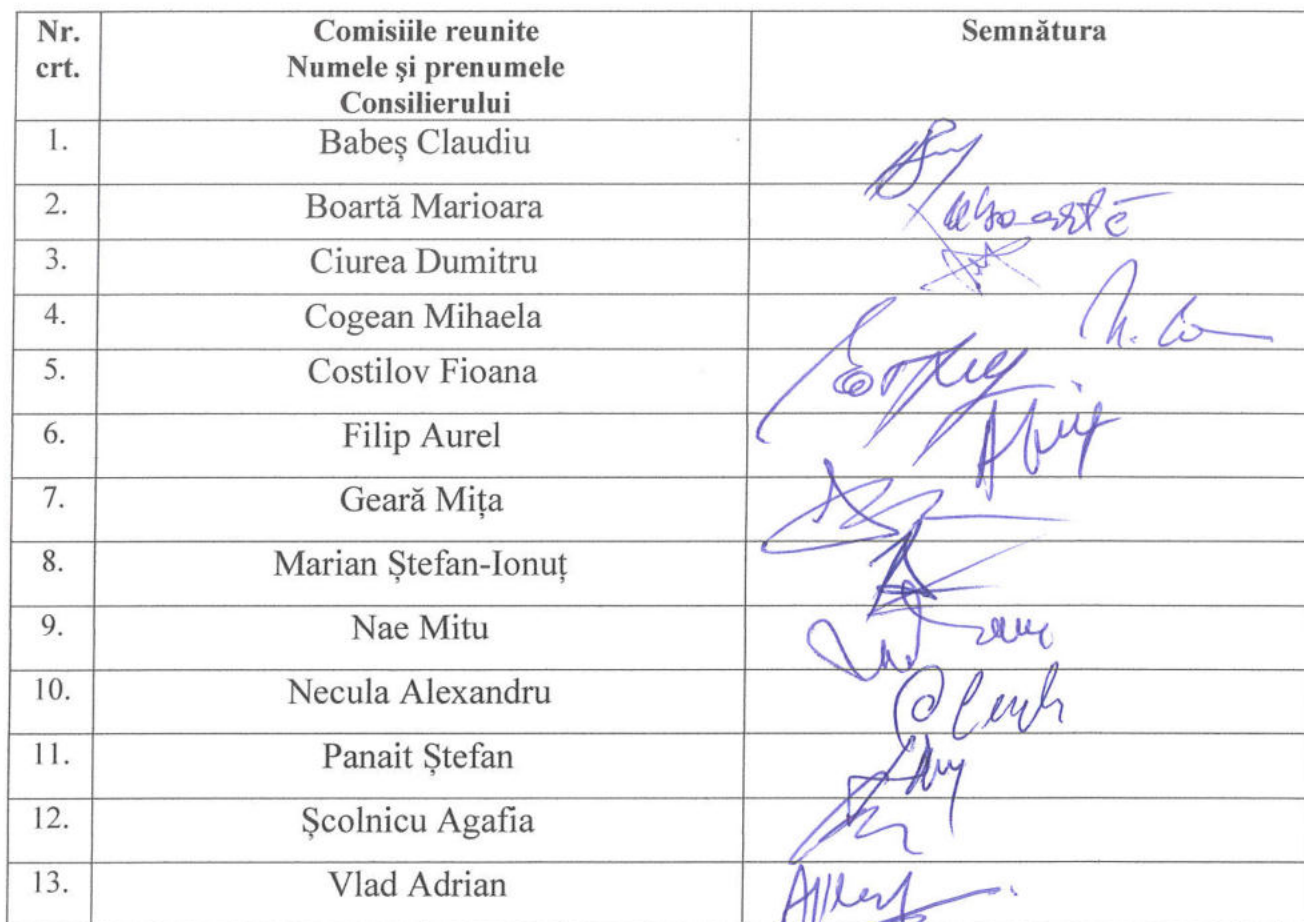 Nr. crt.
Comisiile reunite
Numele şi prenumele
Consilierului
Semnătura
1. Babeş Claudiu
2. Boartă Marioara
3. Ciurea Dumitru
4. Cogean Mihaela
5. Costilov Fioana
6. Filip Aurel
7. Geară Mița
8. Marian Ștefan-Ionuț
9. Nae Mitu
10. Necula Alexandru
11. Panait Ștefan
12. Școlnicu Agafia
13. Vlad Adrian